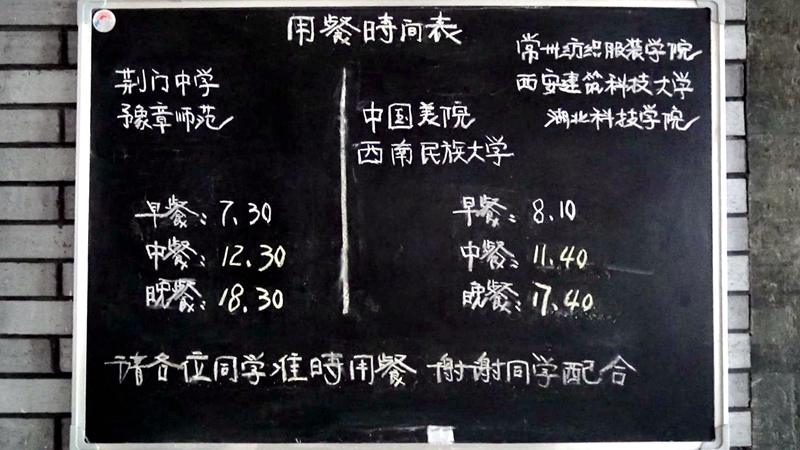 用餐時间表
荆门中学
豫章师范
早餐：7.30
中餐：12.30
晚餐：18.30
常州纺织服装学院
西安建筑科技大学
中国美院 湖北科技学院
西南民族大学
早餐：8.10
中餐：11.40
晚餐：17.40
请各位同学准時用餐 谢谢同学配合